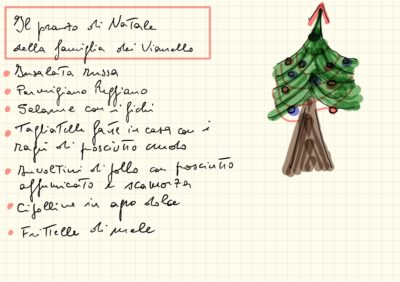 Il pranzo di Natale
della famiglia dei Vianello
Insalata russa
Parmigiano Reggiano
Salame con i fichi
Tagliatelle fatte in casa con i
ragù di prosciutto crudo
Involtini di pollo con prosciutto
affumicato e scamorza
Cipolline in agro dolce
Frittelle di mele